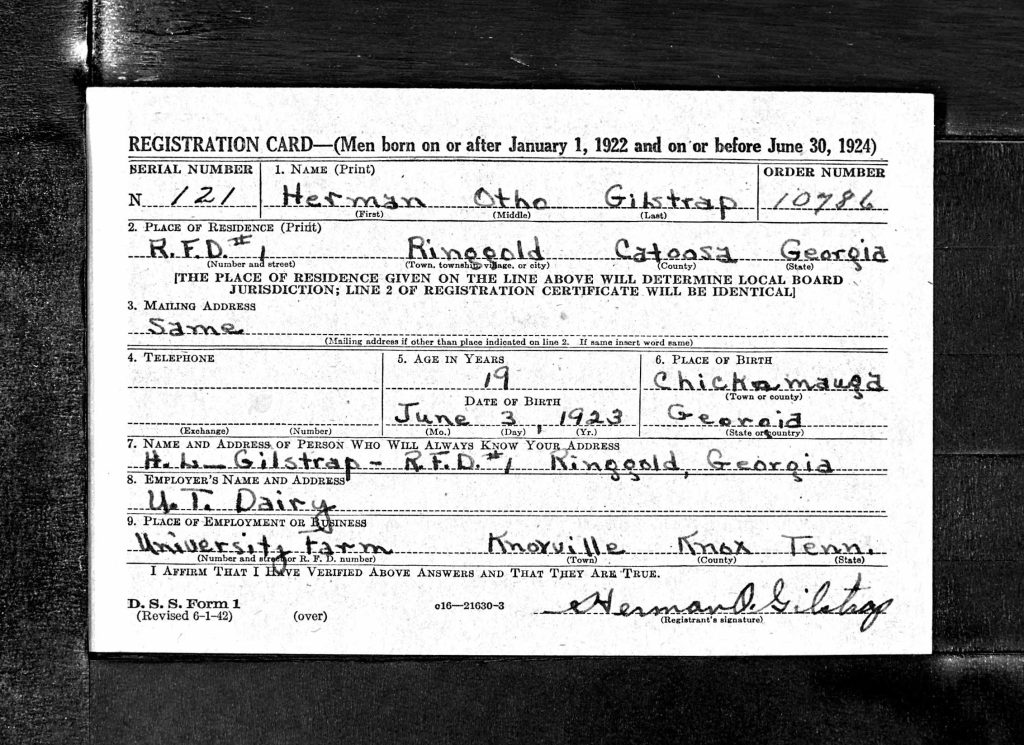 REGISTRATION CARD—(Men born on or after January 1, 1922 and on or before June 30, 1924)
SERIAL NUMBER 1. NAME (Print) ORDER NUMBER
N 121 Herman Otho Gilstrap 10786
(First) (Middle) (Last)
2. PLACE OF RESIDENCE (Print)
R.F.D. #1 Ringgold Catoosa Georgia
(Number and street) (Town, township, village, or city) (County) (State)
[THE PLACE OF RESIDENCE GIVEN ON THE LINE ABOVE WILL DETERMINE LOCAL BOARD
JURISDICTION; LINE 2 OF REGISTRATION CERTIFICATE WILL BE IDENTICAL]
3. MAILING ADDRESS
Same
(Mailing address if other than place indicated on line 2. If same insert word same)
4. TELEPHONE 5. AGE IN YEARS 6. PLACE OF BIRTH
19 Chickamauga
DATE OF BIRTH (Town or county)
June 3, 1923 Georgia
(Exchange) (Number) (Mo.) (Day) (Yr.) (State or country)
7. NAME AND ADDRESS OF PERSON WHO WILL ALWAYS KNOW YOUR ADDRESS
H. L. Gilstrap - R.F.D. #1 Ringgold, Georgia
8. EMPLOYER'S NAME AND ADDRESS
U.T. Dairy
9. PLACE OF EMPLOYMENT OR BUSINESS
University Farm Knoxville Knox Tenn.
(Number and street or R. F. D. number) (Town) (County) (State)
I AFFIRM THAT I HAVE VERIFIED ABOVE ANSWERS AND THAT THEY ARE TRUE.
D. S. S. Form 1 o16—21630-3 Herman O. Gilstrap
(Revised 6-1-42) (over) (Registrant's signature)